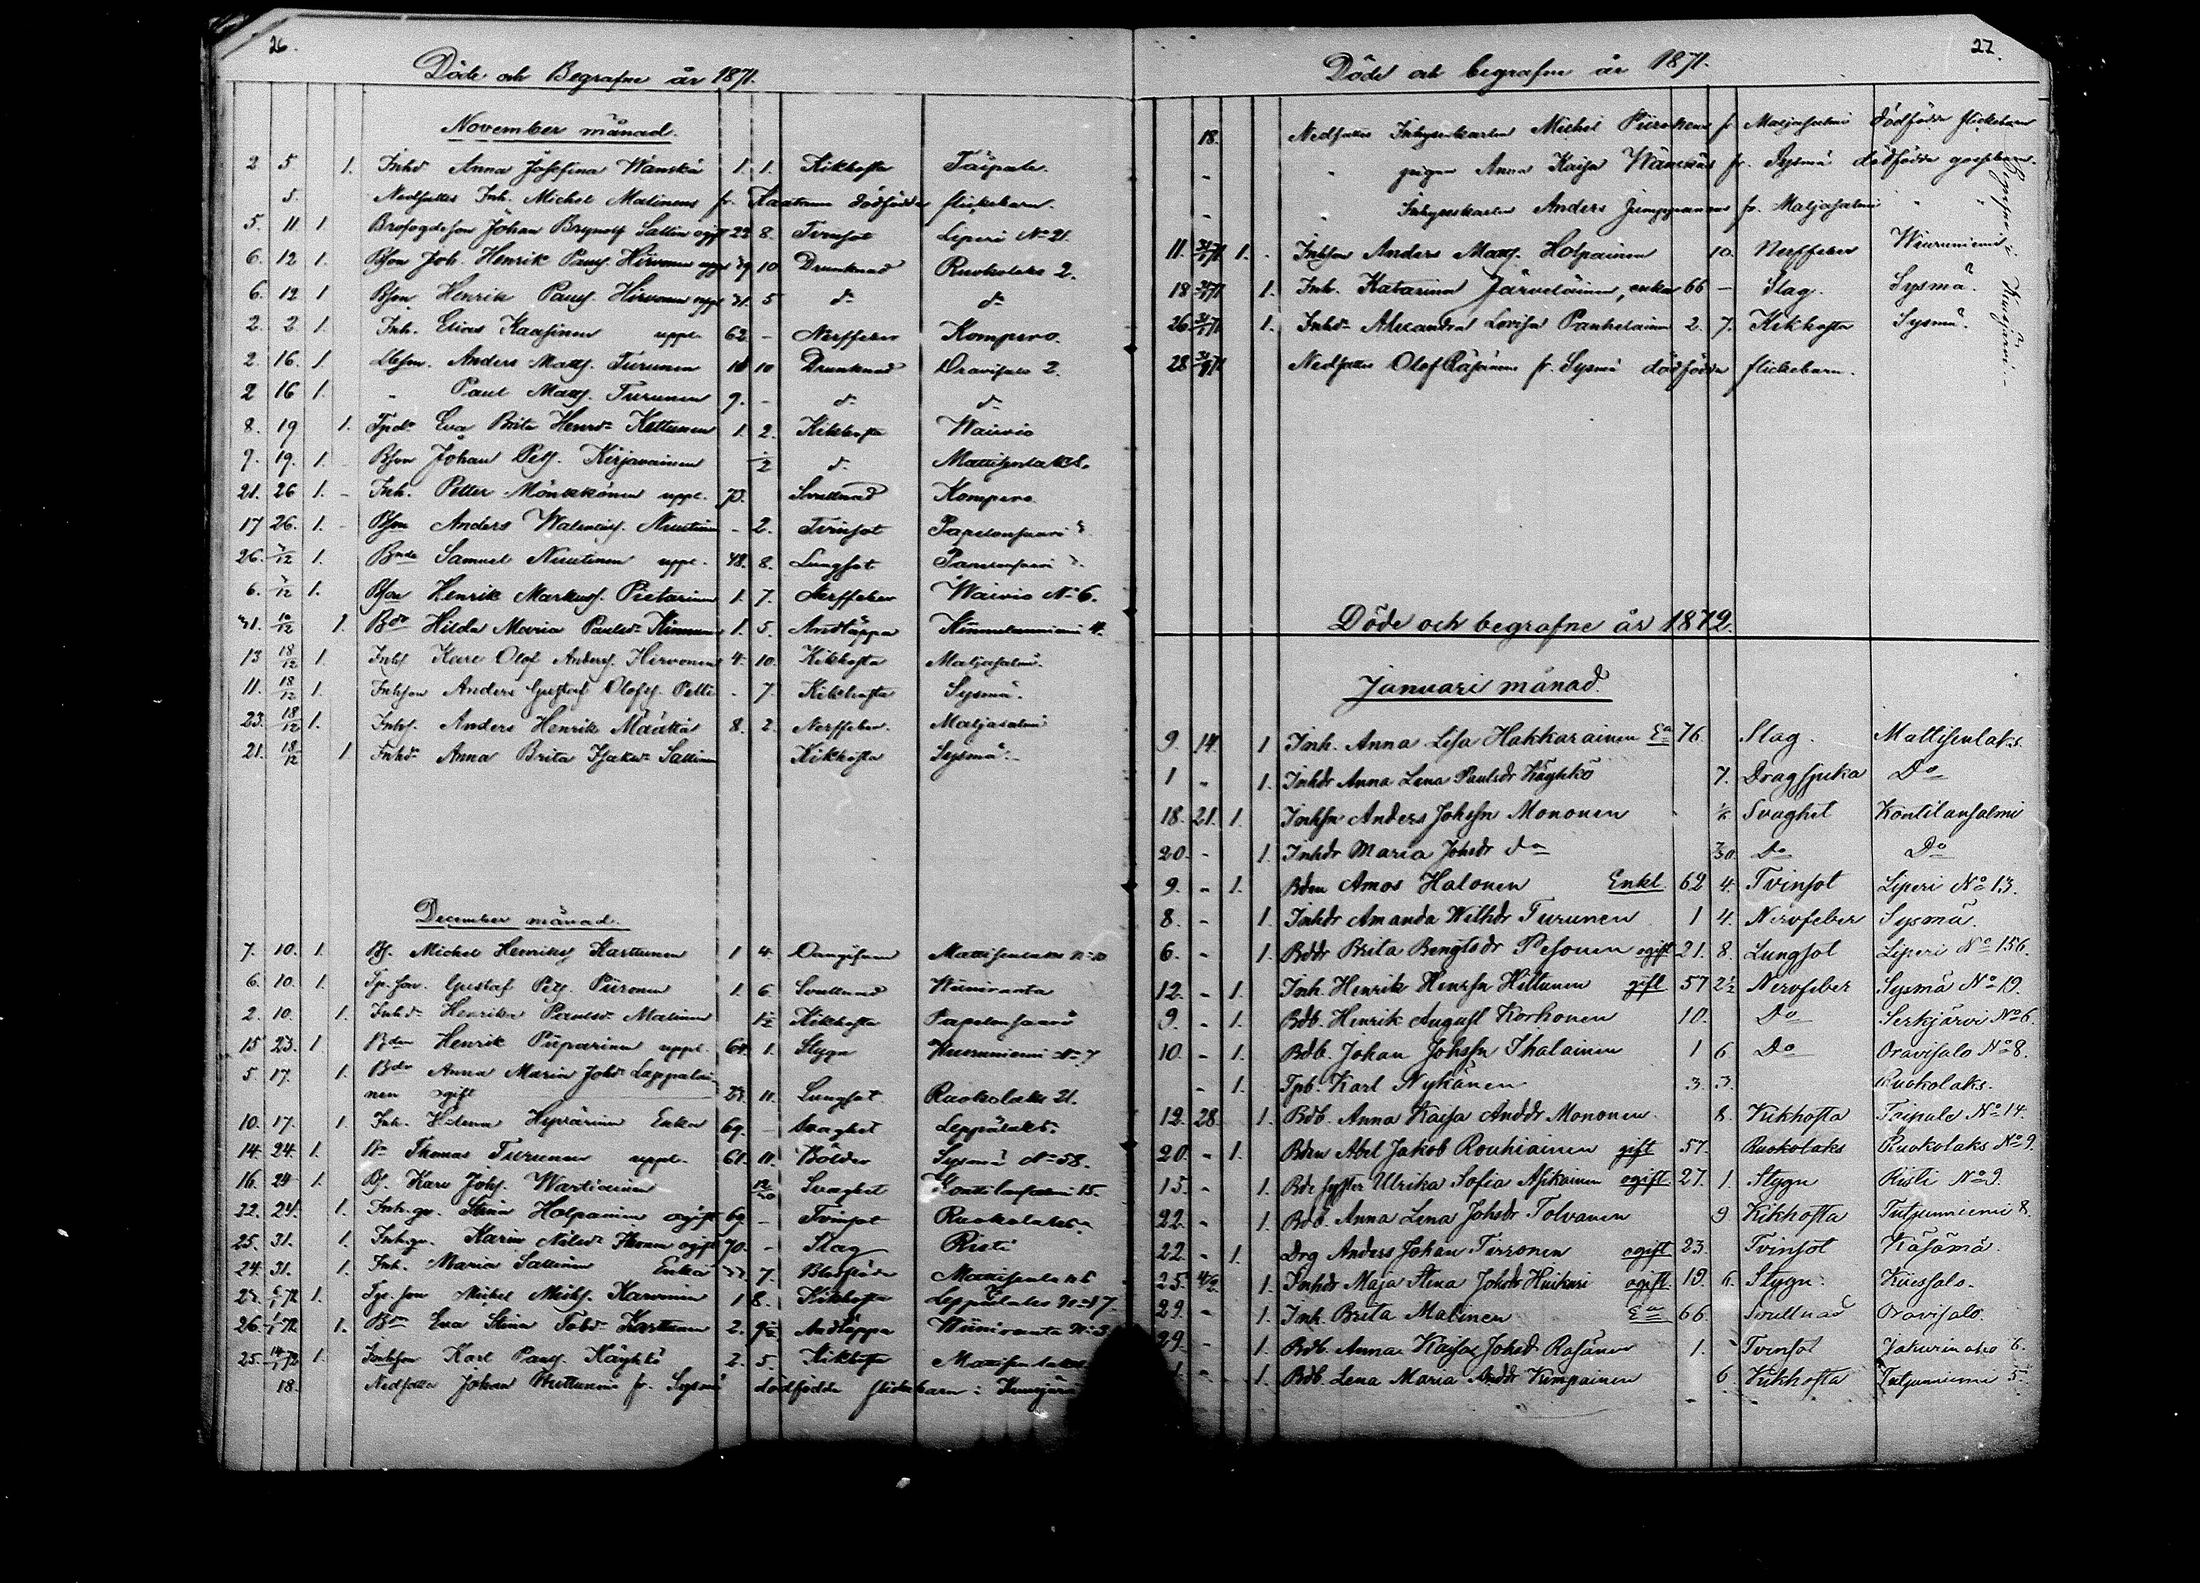 26.
Döde och Begrafne år 1871.
November månad.
2 5 1. Inhd Anna Josefina Wänskä 1. 1. Kikhosta Taipale.
5. Nedsattes Inh. Michel Malinens fr. dödfödda flickebarn.
5. 11 1 Johan Brynolf Sallin ogift 22 8. Tvinsot Liperi No 21.
6. 12 1. Bson Joh. Henrik Pauls. Hirvonen 10 Drunknad Ruokolaks 2.
6. 12 1 Bson Henrik Pauls. Hirvonen 5 do do
2. 2 1. Inh. Elias Kaasinen uppl. 62 - Nerffeber Kompero.
2. 16. 1. Anders Matts. Turunen 10 10 Drunknad Oravisalo 2.
2 16 1. " Paul Matts. Turunen 9. - do do
8. 19 1. Eva Brita Henrdr Kettunen 1. 2. Kikhosta Waivio
9. 19. 1. Bson Johan Pets. Kirjavainen ½ do
21. 26 1. - Inh. Petter Mönkkönen uppl. 73. Svullnad Kompero.
17 26. 1. - Bson Anders Nuutinen - 2. Tvinsot
26. 3/12 1. Bnde Samuel Nuutinen uppl. 48. 8. Lungsot
6. 3/12 1. Bson Henrik Markuss. Pietarinen 1. 7. Nerffeber Waivio No 6.
10/12 1. Bdr Hilda Maria Paulsdr Kinnunen 1. 5. Andtäppa
13 18/12 1. Inhs Karl Olof Anders. Hirvonen 4. 10. Kikhosta Maljasalmi.
11. 18/12 1. Inhson Anders Gustaf Olofs. Pelli - 7. Kikhosta Sysmä.
23. 18/12 1. Inhs. Anders Henrik Määttä 8. 2. Nerffeber. Maljasalmi
21. 18/12 1 Inhd. Anna Brita Isaksdr Sallinen Kikhosta Sysmä.
December månad.
7. 10. 1. Bs. Michel Henriks Karttunen 1 4.
6. 10. 1. Tp. son. Gustaf Pets. Piironen 1. 6 Svullnad Wiiniranta
2. 10. 1. Inhd. Henrika Paulsdr Malinen 1½ Kikhosta
15 23. 1 Bden Henrik Piiparinen uppl. 64. 1. Stygn
5. 17. 1. Bdr Anna Maria Johdr Lappalai-
nen ogift 11. Lungsot Ruokolaks 21.
10. 17. 1 Inh. Helena Hyvärinen Enka 69. - Svaghet Leppälaks.
14. 24. 1. Thomas Turunen uppl. 61. 11. Bölder Sysmä No 58.
16. 24 1. Bs. Karl Johs. Wartiainen 12/30 Svaghet Kontilansalmi 15.
22. 24. 1. Stina Holpainen ogift 69 - Tvinsot Ruokolaks
25. 31. 1. Karin Nilsdr ogift 70. - Slag Risti
24. 31. 1. Inh. Maria Sallinen Enka 7. Blodflöde Mattisenlaks
6/1 72 1. Tp. son Michel 1 8. Kikhosta Leppälaks No 17.
26. 1/1 72 1. Eva Stina Tobdr Karttunen 2. 9½ Andtäppa Wiiniranta
25. 14/1 72 1. Inhson Karl Pauls. Käyhkö 2. 5. Kikhosta Mattisenlaks
18. Nedsattes Johan fr. Sysmä dödfödda flickebarn i
27.
Döde och begrafne år 1871.
18. Nedsattes Inhysenkarlen Michel Piironens fr. Maljasalmi dödfödda flickebarn
- " pigan Anna Kaisa Wänskäs fr. Sysmä dödfödda gossebarn.
- " Inhysenkarlen Anders Jumppanens fr. Maljasalmi " "
Begrafne i Kuusjärvi
11. 31/71 1. - Inhson Anders Matts. Holpainen 10. Nerffeber
18 31/71 1. Inh. Katarina Järveläinen, enka 66 - Slag. Sysmä.
26 31/71 1. Inhdr Alexandra Lovisa Pauhelainen 2. 7. Kikhosta Sysmä.
28 31/71 Nedsattes Olof Räsänens fr. Sysmä dödfödda flickebarn.
Döde och begrafne år 1872.
Januari månad.
9. 14. 1 Inh. Anna Lisa Hakkarainen Ea 76. Slag. Mattisenlaks.
1 - 1. Inhdr Anna Lena Paulsdr Käyhkö 7. Dragsjuka Do
18. 21. 1. Inhsn Anders Johssn Mononen Svaghet Kontilansalmi
20. - 1. Inhdr Maria Johsdr do 3/30. Do Do
9. - 1. Bden Amos Halonen Enkl. 62 4. Tvinsot Liperi No 13.
8. - 1 Inhdr Amanda Wilhdr Turunen 1 4. Nervfeber Sysmä.
6. - 1. Bddr Brita Bengtsdr Pesonen ogift 21. 8. Lungsot Liperi No 156.
12. - 1. Inh. Henrik Henrsn Hiltunen gift 57 2½ Nervfeber Sysmä No 19.
9. - 1. Bdb. Henrik August Korhonen 10. Do Serkjärvi No 6.
10. - 1. Bdb. Johan Johssn Ihalainen 1 6 Do Oravisalo No 8.
- 1. Tpb. Karl Nykänen 3. 3. Ruokolaks.
12. 28. 1. Bdb. Anna Kaisa Anddr Mononen. 8. Kikhosta Taipale No 14.
20. - 1. Bden Abel Jakob Rouhiainen gift 57. Ruokolaks Ruokolaks No 9.
15. - 1. Bde syster Ulrika Sofia Asikainen ogift 27. 1. Stygn Risti No 9.
22. - 1. Bdb. Anna Lena Johsdr Tolvanen 9 Kikhosta Tutjunniemi 8.
22. - 1. Drg Anders Johan Tirronen ogift 23. Tvinsot Käsämä.
25. 4/2 1. Inhdr Maja Stina Johsdr Huikuri ogift 19. 6. Stygn Kiessalo.
29. - 1. Inh. Brita Malinen Ea 66. Svullnad Oravisalo.
29. - 1. Bdb. Anna Kaisa Johsd Räsänen 1. - Tvinsot 6.
- 1. Bdb. Lena Maria Anddr Kimpainen 6. Kikhosta Tutjunniemi 5.